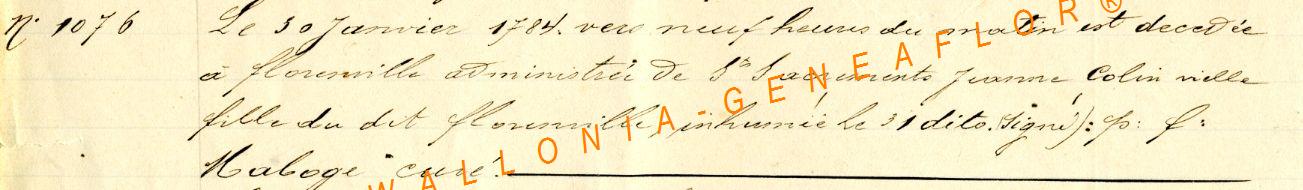 N° 1076 Le 30 Janvier 1784. vers neuf heures du matin est decedée
à florenville administrée de Sts Sacrements Jeanne Colin vielle
fille du dit florenville, inhumée le 31 dito. (signé): p: f:
Maboge curé.
WALLONIA-GENEAFLOR®